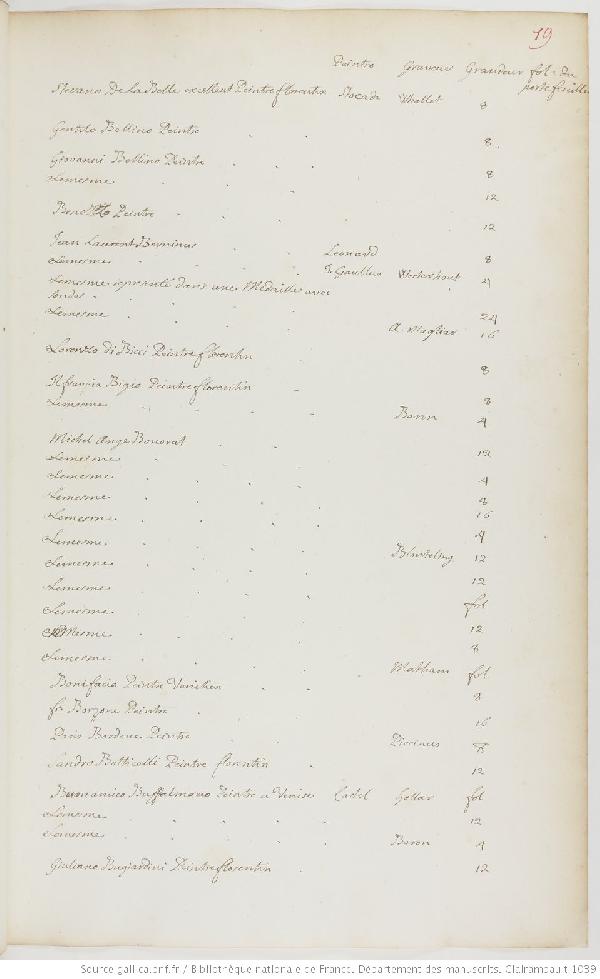 19
Peintre Graveur Grandeur fol. du
portefeuille
Stevano De La Belle excellent Peintre florentin Stocade Whollet 8
Gentile Bellino Peintre 8
Giovanni Bellino Peintre 8
Lemesme 12
Peintre 12
Jean Laurent Berninus Leonard 8
Lemesme Westerhout 4
Lemesme représenté dans une Médaille avec 24
Lemesme A. Magliar 16
Lorenzo di Bicci Peintre florentin 8
Il francia Bigio Peintre florentin 8
Lemesme Baron 4
Michel Ange Bonarot 12
Lemesme 4
Lemesme 8
Lemesme 16
Lemesme 4
Lemesme 12
Lemesme 12
Lemesme fol
Lemesme 12
Mesme 8
Lemesme Matham fol
Bonifacio Peintre Venitien 8
fr Borzone Peintre 16
Paris Bordone Peintre 8
Sandro Botticelli Peintre florentin 12
Buffalmaco Peintre a Venise Castel Hollar fol
Lemesme 12
Lemesme Baron 4
Giuliano Bugiardini Peintre florentin 12
Source gallica.bnf.fr / Bibliothèque nationale de France. Département des manuscrits. Clairambault 1039